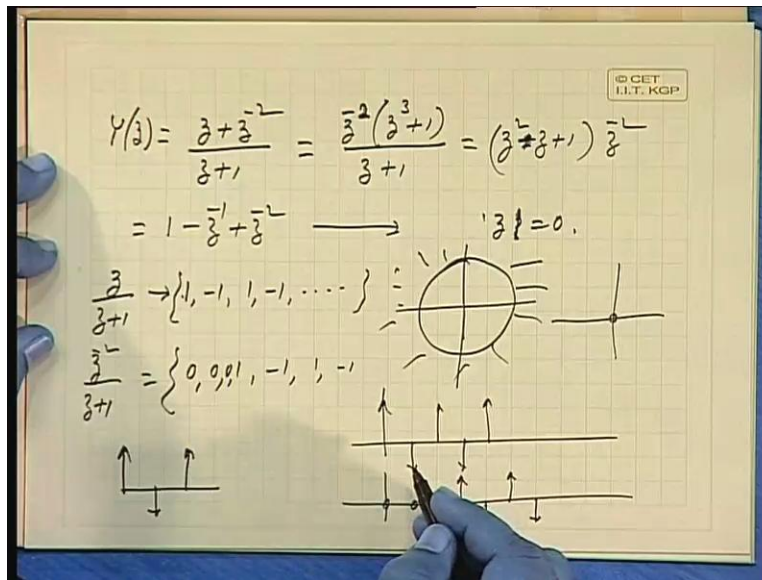 © CET
I.I.T. KGP
Y(z) = (z + z^-2)/(z + 1) = z^-2 (z^3 + 1)/(z + 1) = (z^2 - z + 1) z^-2
= 1 - z^-1 + z^-2 ⟶ |z| = 0.
z/(z+1) → {1, -1, 1, -1, ..... }
z^-2/(z+1) = { 0, 0, 0, 1, -1, 1, -1